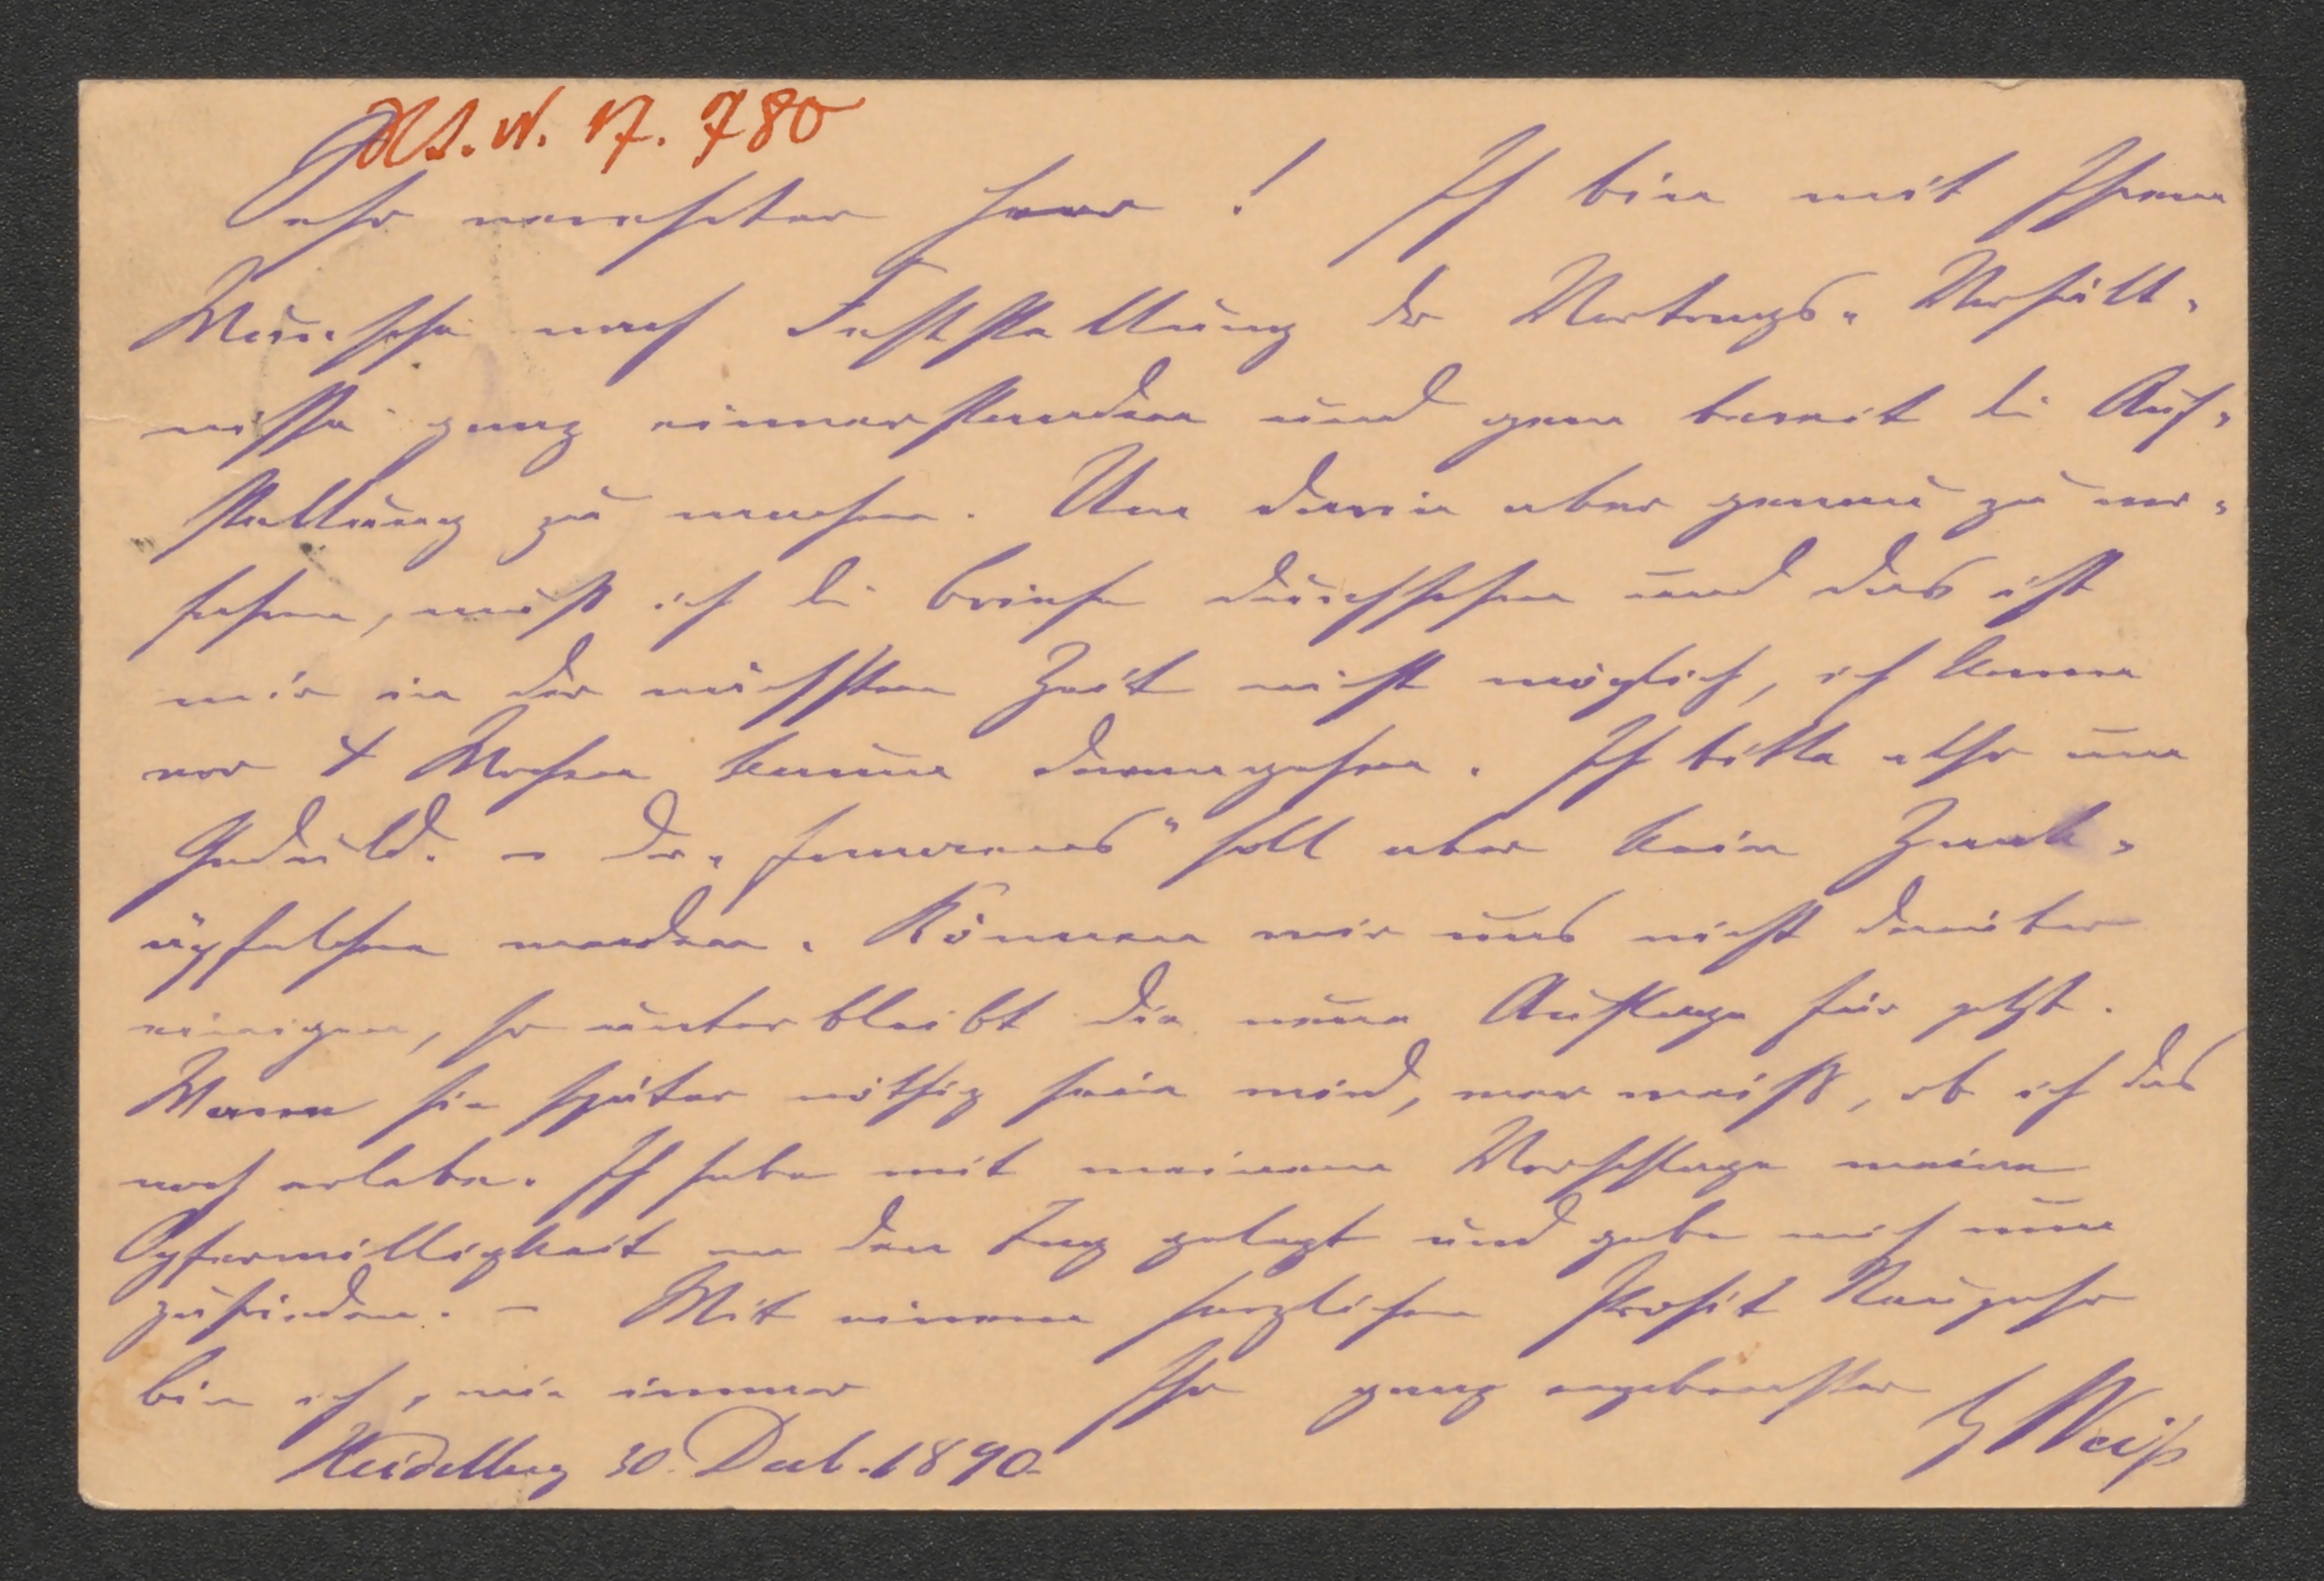 17. 780
Sehr verehrter Herr! Ich bin mit Ihrem
Wunsche nach Feststellung der Vertrags-Verhält-
nisse ganz einverstanden und gern bereit die Auf-
stellung zu machen. Um darin aber genau zu ver-
fahren, muß ich die Briefe durchsehen und das ist
mir in der nächsten Zeit nicht möglich, ich kann
vor 4 Wochen kaum darangehen. Ich bitte also um
Geduld. – Der soll aber kein Zank-
äpfelchen werden. Können wir uns nicht darüber
einigen, so unterbleibt die neue Auflage für jetzt.
Wann sie später nöthig sein wird, wer weiß, ob ich das
noch erlebe. Ich habe mit meinem Vorschlage meine
Opferwilligkeit an den Tag gelegt und gebe mich nun
zufrieden. – Mit einem herzlichen Prosit Neujahr
bin ich, wie immer Ihr ganz ergebenster Weiß
Heidelberg 30. Decb. 1890.